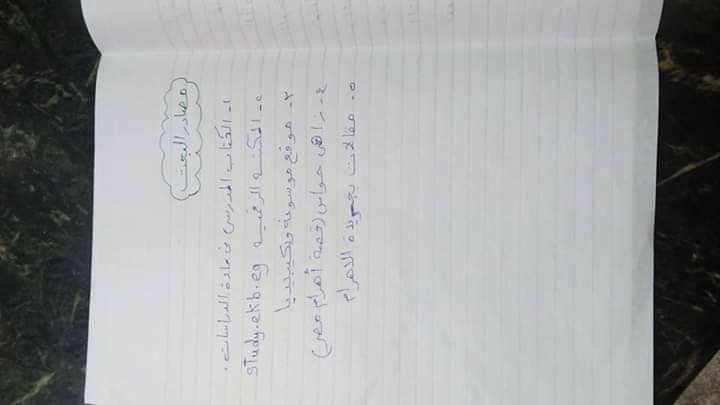 مصادر البحث
١- الكتاب المدرسى فى مادة الدراسات.
٢- المكتبه الرقميه study.ekb.eg
٣- موقع موسوعة ويكيبيديا
٤- زاهى حواس (قصة أهرام مصر)
٥- مقالات بجريدة الاهرام